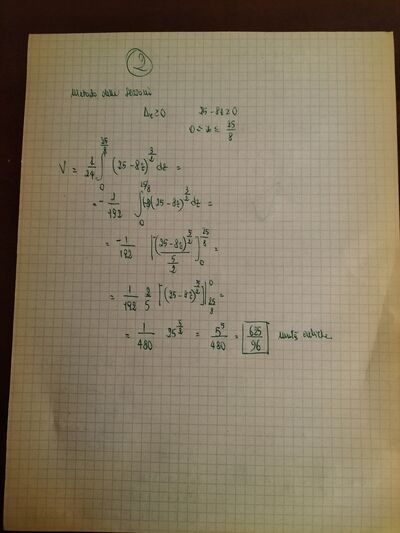 2
Metodo delle sezioni
Δz ≥ 0 25 - 8z ≥ 0
0 ≤ z ≤ 25/8
V = 1/24 ∫₀^{25/8} (25 - 8z)^{3/2} dz =
= - 1/192 ∫₀^{25/8} -8 (25 - 8z)^{3/2} dz =
= -1/192 [(25 - 8z)^{5/2} / (5/2)]₀^{25/8} =
= 1/192 2/5 [(25 - 8z)^{5/2}]_{25/8}^0 =
= 1/480 25^{5/2} = 5^5/480 = 625/96 unità cubiche